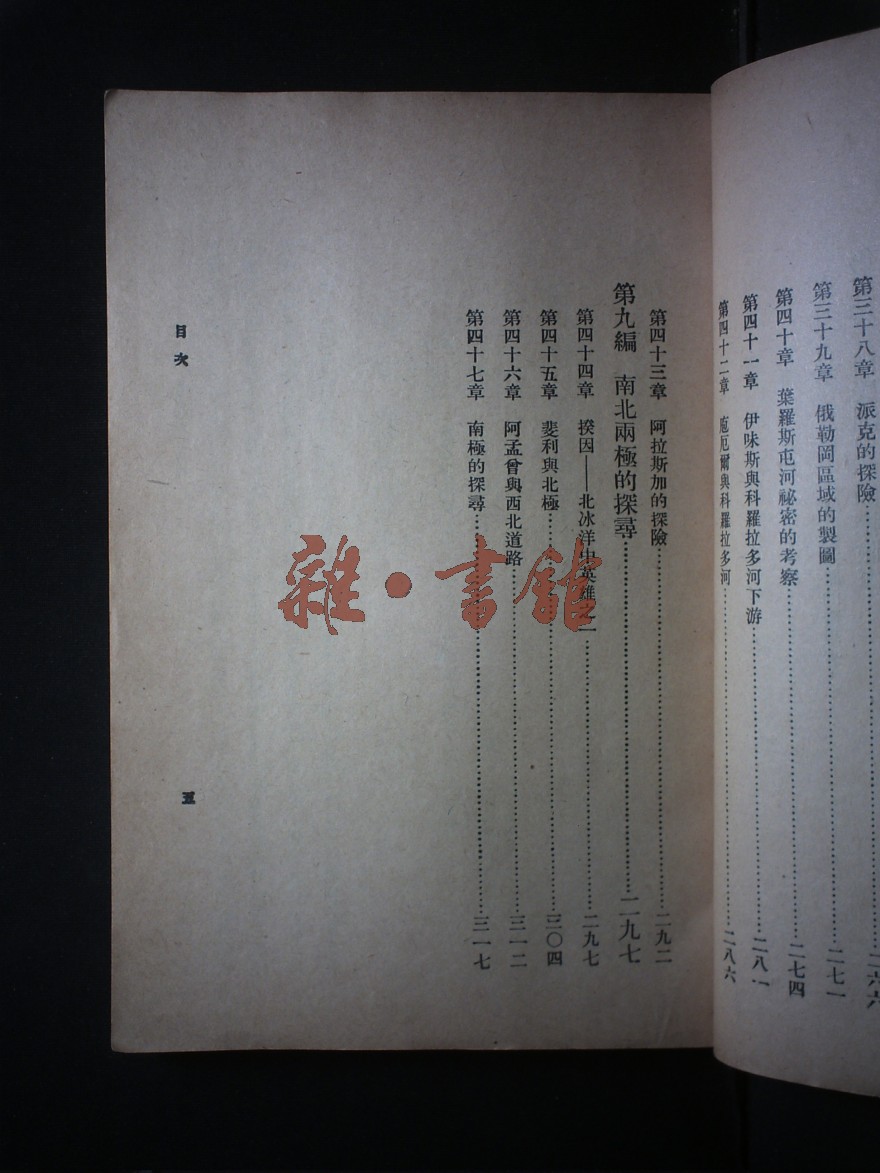 第三十八章　派克的探險…………二六六
第三十九章　俄勒岡區域的製圖…………二七一
第四十章　葉羅斯屯河祕密的考察…………二七四
第四十一章　伊味斯與科羅拉多河下游…………二八一
第四十二章　與科羅拉多河…………二八六
第四十三章　阿拉斯加的探險…………二九二
第九編　南北兩極的探尋…………二九七
第四十四章　揆因——北冰洋中英雄之一…………二九七
第四十五章　斐利與北極…………三〇四
第四十六章　阿孟曾與西北道路…………三一二
第四十七章　南極的探尋…………三一七
目次
五
雜·書館